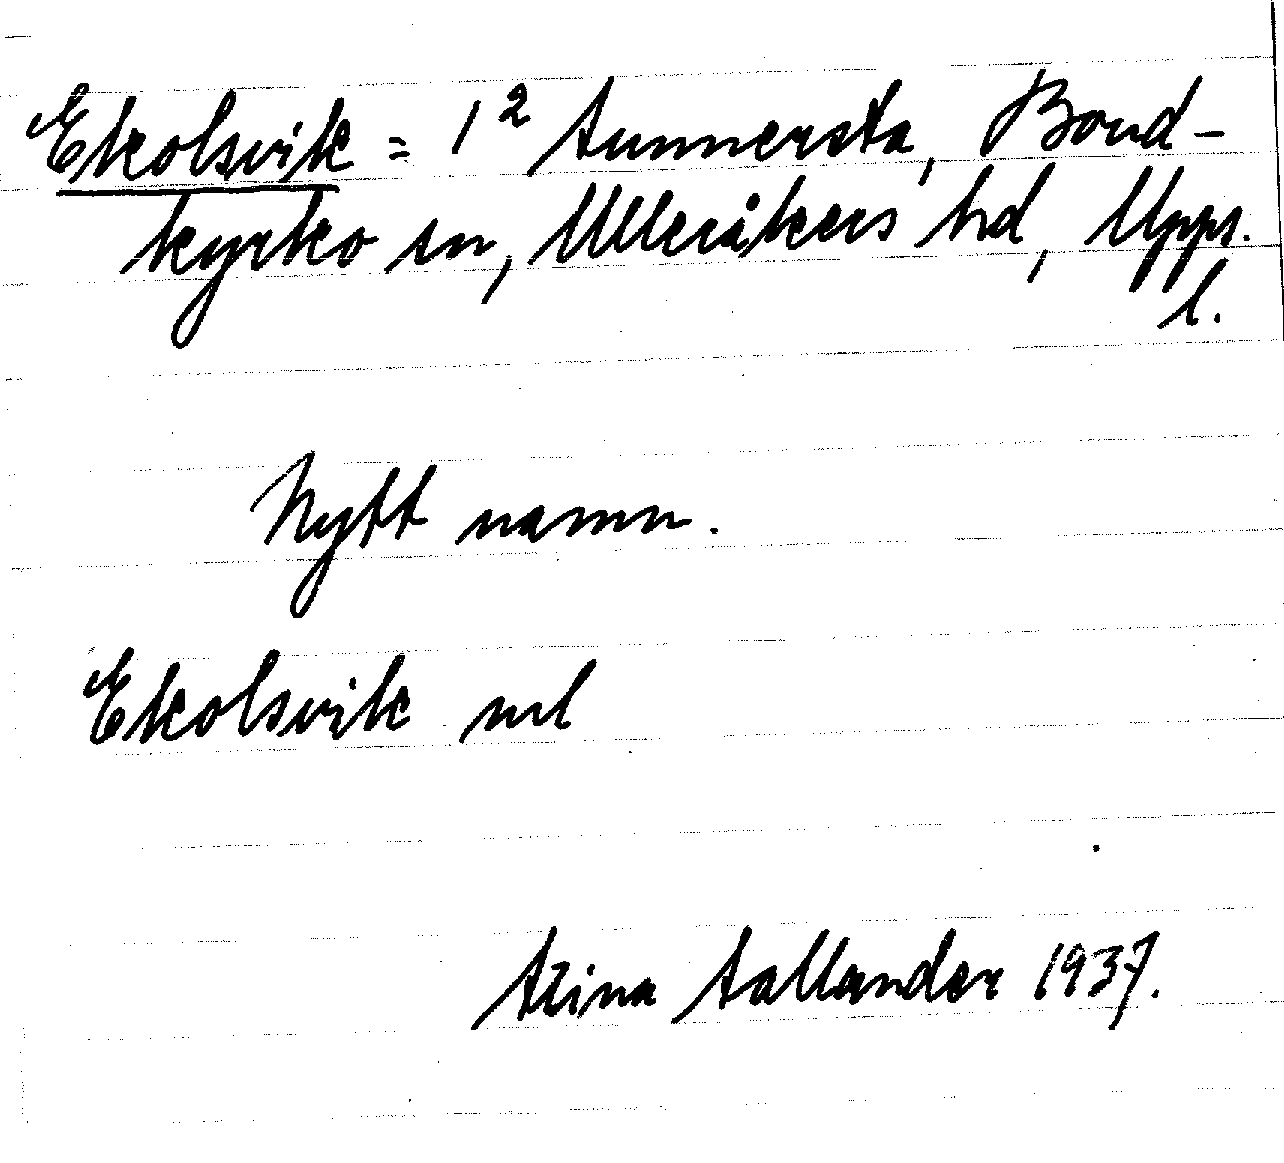 Ekolsvik = 1² Sunnersta, Bond-
kyrko sn, Ulleråkers hd, Upps.
l.
Nytt namn.
Ekolsvik
Stina Sallander 1937.